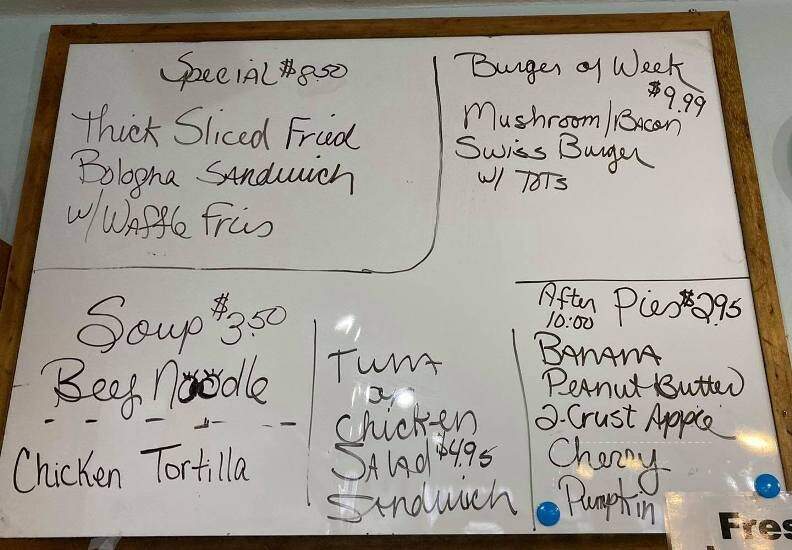 Special $8.50
Thick Sliced Fried
Bologna Sandwich
w/Waffle Fries
Burger of Week
$9.99
Mushroom/Bacon
Swiss Burger
w/ TOTS
Soup $3.50
Beef Noodle
Chicken Tortilla
Tuna
or
Chicken
Salad $4.95
Sandwich
After
10:00
Pies $2.95
Banana
Peanut Butter
2-Crust Apple
Cherry
Pumpkin
Fres